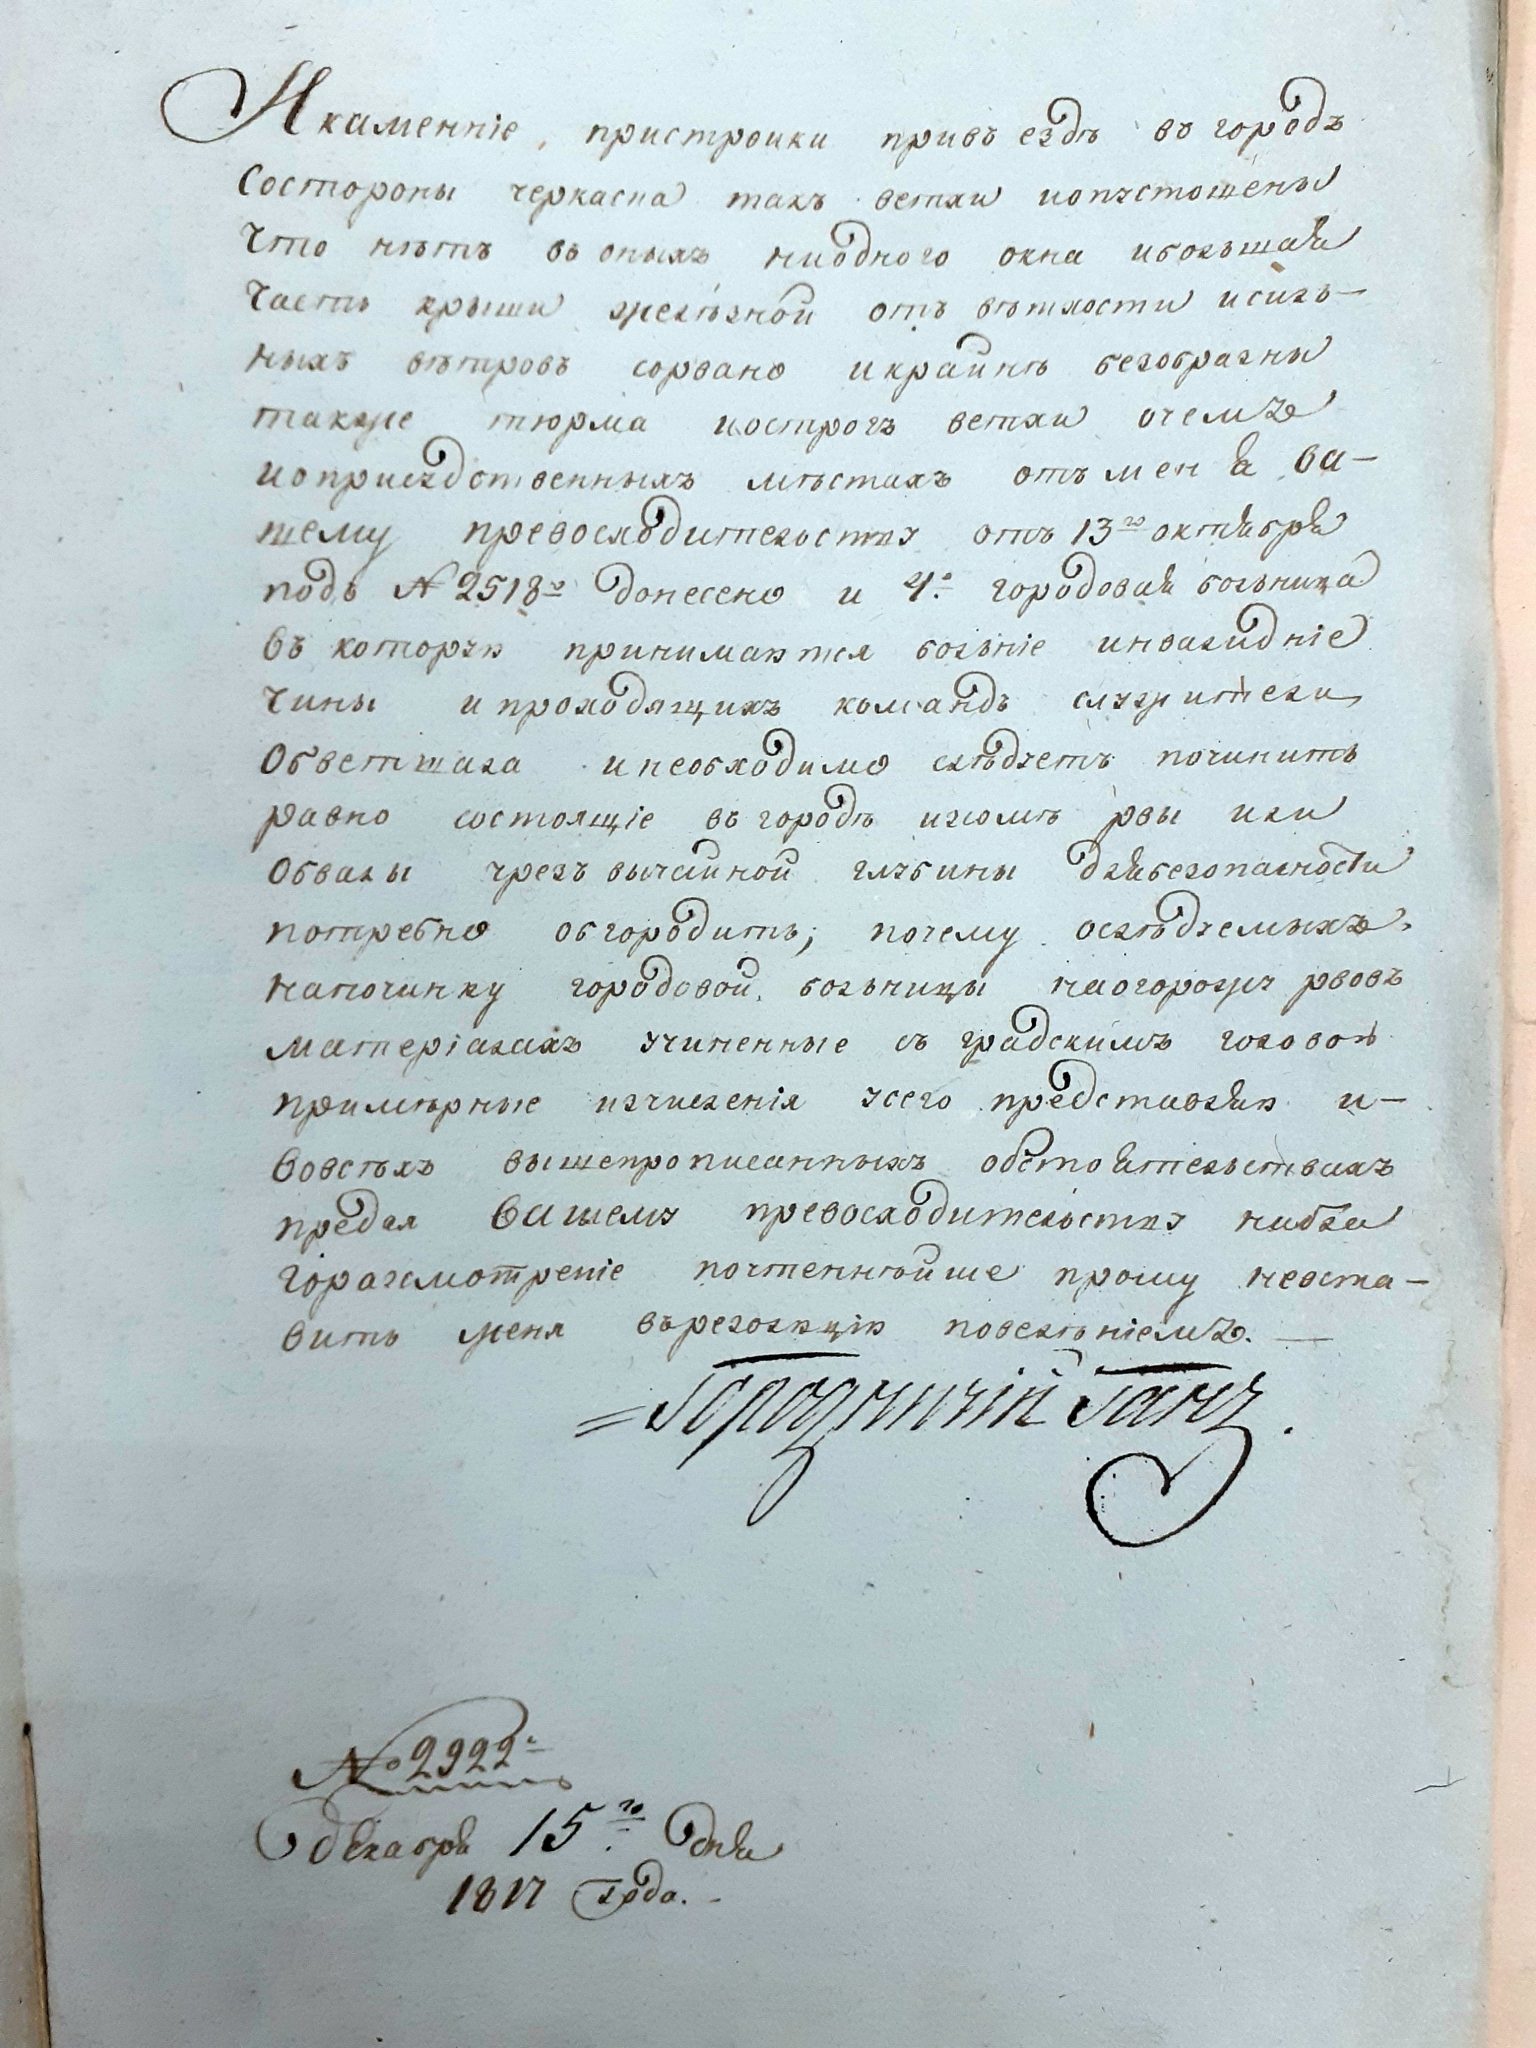 И каменніе, пристроики привъ ездѣ въ городъ
состороны черкаска такъ ветхи иопустошены
что нѣтъ въ оныхъ ниодного окна ибольшая
часть крыши желѣзной отъ вѣтхости исиль-
ныхъ вѣтровъ сорвано икрайнѣ безобразны
также тюрма иострогъ ветхи очемъ
иоприсудственныхъ мѣстахъ отъ меня ва-
шему превосходительству отъ 13го октября
подъ №2518мъ донесено и 4е. городовая больница
въ которую принимаются больніе инвалидніе
чины и проходящихъ командъ служители
обветшала инеобходимо слѣдуетъ починить
равно состоящіе въ городѣ изюмѣ рвы или
обвалы чрезъ вычайной глубины длябезопасности
потребно обгородить; почему ослѣдуемыхъ
напочинку городовой больницы наогорожу рвовъ
матеріалахъ учиненные съ градскимъ головою
примѣрные изчисленія усего представляю и-
вовсѣхъ вышепрописанныхъ обстоятельствахъ
предая вашему превосходительству набла
горазсмотреніе почтеннѣйше прошу неоста-
вить меня върезолюціи повелѣніемъ.
Городничій Ганъ.
№ 2922.
декабря 15го дня
1817 года.